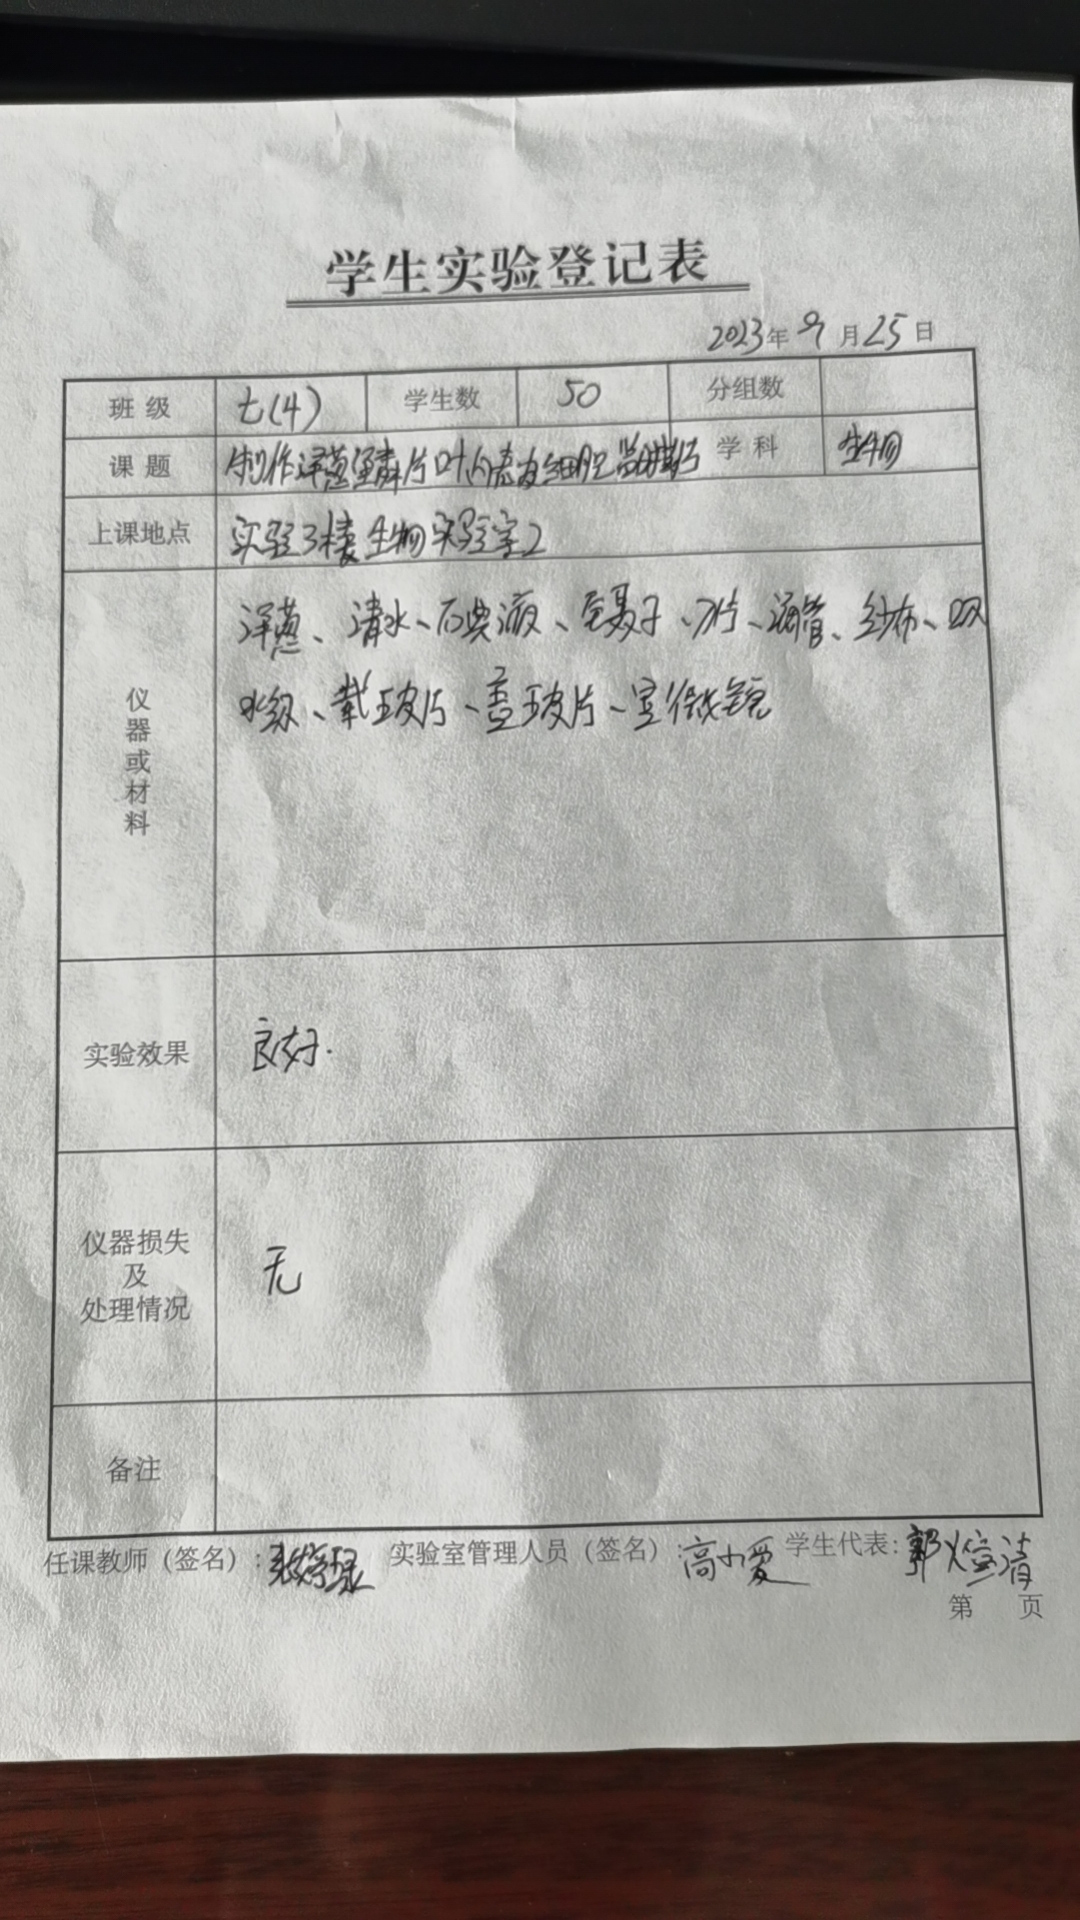 学生实验登记表
2023年 9月25日
班级 七(4) 学生数 50 分组数
课题 制作洋葱鳞片叶内表皮细胞临时装片 学科 生物
上课地点 实验3楼生物实验室2
仪器或材料
洋葱、清水、石典液、镊子、刀片、滴管、纱布、吸
水纸、载玻片、盖玻片、显微镜
实验效果 良好.
仪器损失
及
处理情况
无
备注
任课教师（签名）: 实验室管理人员（签名）: 高小爱 学生代表: 郭煊清
第 页